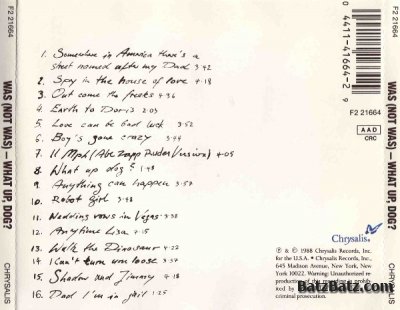 F2 21664
WAS (NOT WAS) — WHAT UP, DOG?
CHRYSALIS
1. Somewhere in America there's a
street named after my Dad 3:42
2. Spy in the house of love 4:18
3. Out come the freaks 4:36
4. Earth to Doris 2:09
5. Love can be bad luck 0:52
6. Boy's gone crazy 3:44
7. 11 MPH (Abe Zapp Ruder Version) 4:05
8. What up dog? 1:48
9. Anything can happen 3:57
10. Robot girl 3:48
11. Wedding vows in Vegas 3:38
12. Anytime Lisa 4:15
13. Walk the Dinosaur 4:22
14. I can't turn you loose 3:37
15. Shadow and Jimmy 4:18
16. Dad I'm in jail 1:25
0 4411-41664-2 9
F2 21664
AAD
CRC
Chrysalis.
℗ & © 1988 Chrysalis Records, Inc.
for the U.S.A. • Chrysalis Records, Inc.
645 Madison Avenue, New York, New York
10022. Warning: Unauthorized
reproduction of this
prohibited by
criminal prosecution.
BatzBatz.com
F2 21664
WAS (NOT WAS) — WHAT UP, DOG?
CHRYSALIS
BatzBatz.com